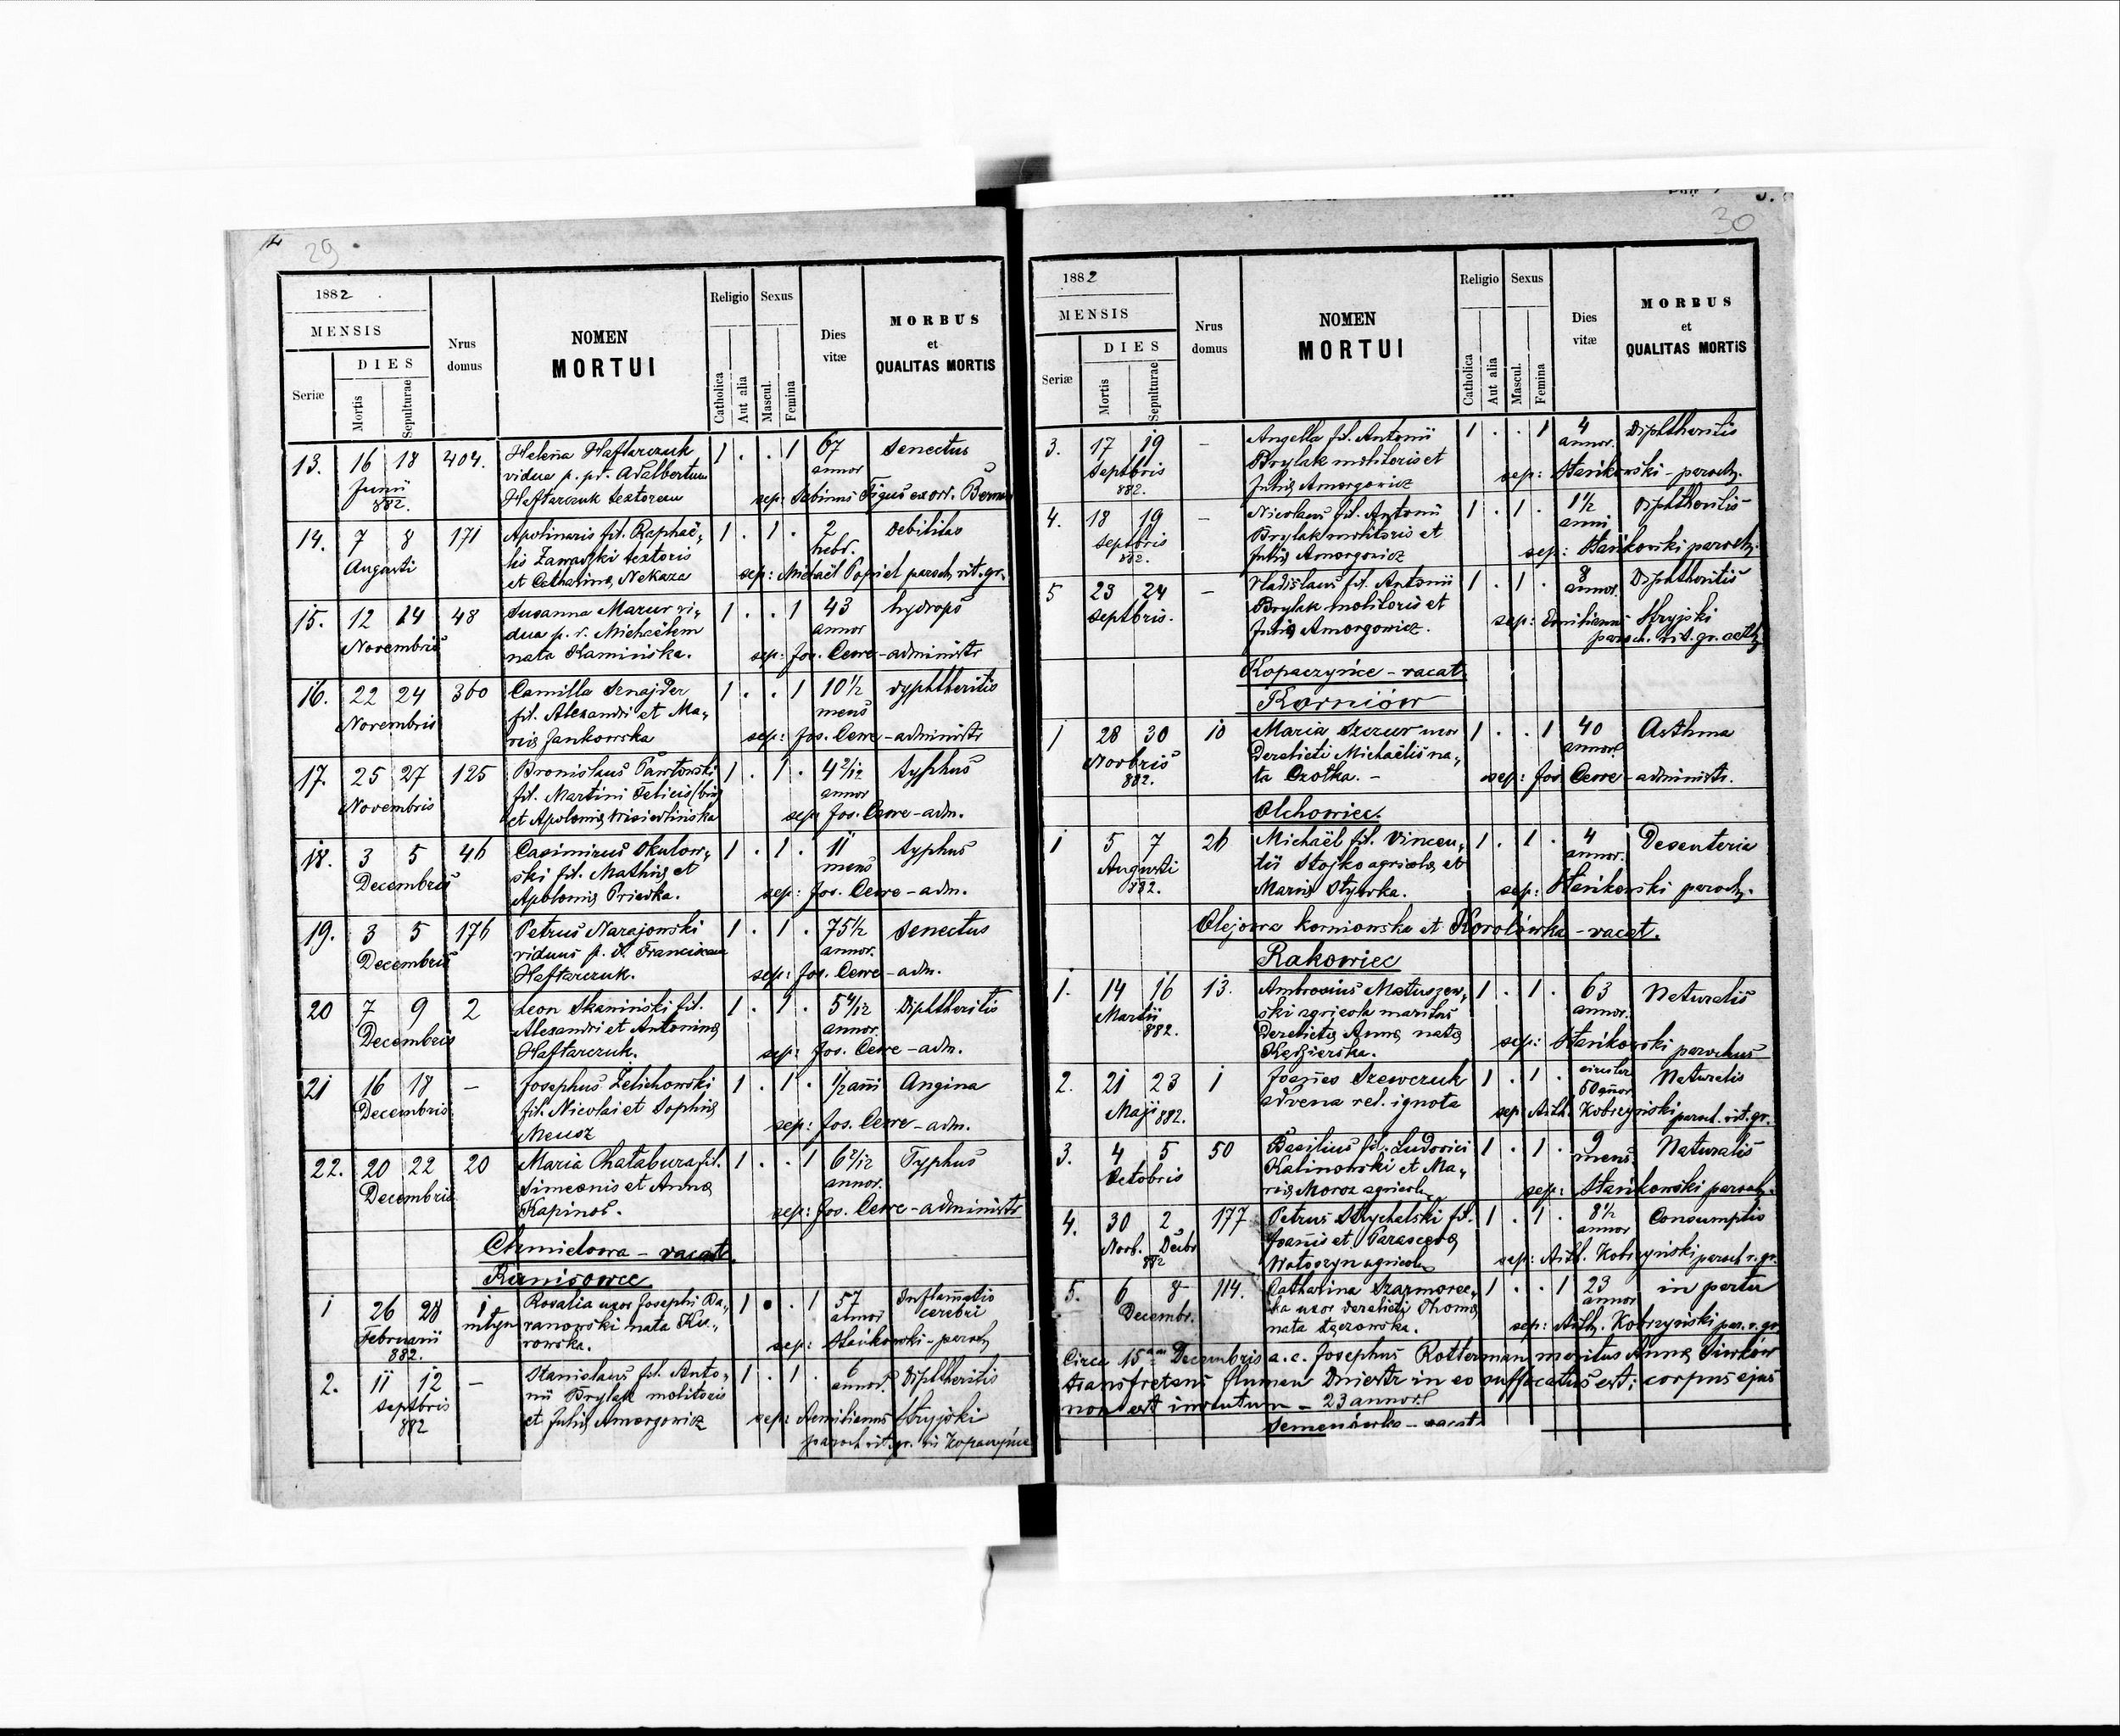 29
1882
MENSIS
Seriæ
DIES
Mortis
Sepulturae
Nrus domus
NOMEN
MORTUI
Religio
Catholica
Aut alia
Sexus
Mascul.
Femina
Dies vitæ
MORBUS
et
QUALITAS MORTIS
13. 16 18 404. Helena Haftarczuk 1 . . 1 67 Senectus
Junii vidua p. pr. Adalbertum annor
882. Haftarczuk textorem sep: Sabinus Figus ex ord.
14. 7 8 171 Apolinaris fil. Raphaë- 1 . 1 . 2 Debilitas
Augusti lis Zawadzki textoris hebd.
et Catharinæ Nekaza sep: Michaël Popiel paroch. rit. gr.
15. 12 14 48 Susanna Mazur vi- 1 . . 1 43 hydrops
Novembris dua p. d. Michaëlem annor
nata Kamińska. sep: Jos. Cewe - administr
16. 22 24 360 Camilla Sznajder 1 . . 1 10½ dyphtheritis
Novembris fil. Alexandri et Ma- mens
riæ Jankowska sep: Jos. Cewe - administr
17. 25 27 125 Bronislaus Pawłowski 1 . 1 . 4 2/12 typhus
Novembris fil. Martini Felicis annor
et Apoloniæ sep: Jos. Cewe - adm.
18. 3 5 46 Casimirus Okulow- 1 . 1 . 11 typhus
Decembris ski fil. Mathiæ et mens
Apoloniæ sep: Jos. Cewe - adm.
19. 3 5 176 Petrus Narajowski 1 . 1 . 75½ Senectus
Decembris viduus p. d. Franciscam annor.
Haftarczuk. sep: Jos. Cewe - adm.
20 7 9 2 Leon Skaniński fil. 1 . 1 . 5 4/12 Diphtheritis
Decembris Alexandri et Antoninæ annor.
Haftarczuk. sep: Jos. Cewe - adm.
21 16 18 - Josephus Zelichowski 1 . 1 . ½ anni Angina
Decembris fil. Nicolai et Sophiæ
Meusz sep: Jos. Cewe - adm.
22. 20 22 20 Maria Chatabura fil. 1 . . 1 6 2/12 Typhus
Decembris Simeonis et Annæ annor.
Kapinos. sep: Jos. Cewe - administr
Chmielowa - vacat.
Kunisowce
1 26 28 1 Rosalia uxor Josephi Ba- 1 . . 1 57 Inflammatio
Februarii młyn ranowski nata Ku- annor cerebri
882. rowska. sep: Stańkowski - paroch
2. 11 12 - Stanislaus fil. Anto- 1 . 1 . 6 Diphtheritis
Septbris nii Brylak molitoris annor.
882 et Juliæ Amorgowicz sep: Aemilianus Stryjski
paroch rit. gr. in Kopaczyńce
30
1882
MENSIS
Seriæ
DIES
Mortis
Sepulturae
Nrus domus
NOMEN
MORTUI
Religio
Catholica
Aut alia
Sexus
Mascul.
Femina
Dies vitæ
MORBUS
et
QUALITAS MORTIS
3. 17 19 - Angella fil. Antonii 1 . . 1 4 Diphtheritis
Septbris Brylak molitoris et annor.
882. Juliæ Amorgowicz sep: Stańkowski - paroch.
4. 18 19 - Nicolaus fil. Antonii 1 . 1 . 1½ Diphtheritis
Septbris Brylak molitoris et anni
882. Juliæ Amorgowicz sep: Stańkowski paroch.
5 23 24 - Vladislaus fil. Antonii 1 . 1 . 8 Diphtheritis
Septbris. Brylak molitoris et annor.
Juliæ Amorgowicz. sep: Emilianus Stryjski
paroch. rit. gr. cath.
Kopaczyńce - vacat
Korniów
1 28 30 10 Maria Szczur uxor 1 . . 1 40 Asthma
Novbris derelicti Michaëlis na- annor.
882. ta Czotka. - sep: Jos Cewe - administr.
Olchowiec.
1 5 7 26 Michaël fil. Vincen- 1 . 1 . 4 Desenteria
Augusti tii Stojko agricolæ et annor.
882. Mariæ Styrska. sep: Stańkowski paroch.
Olejowa korniowska et Korolówka - vacat.
Rakowiec
1. 14 16 13. Ambrosius Matuszew- 1 . 1 . 63 Naturalis
Martii ski agricola maritus annor.
882. derelictæ Annæ natæ
Kędzierska. sep: Stańkowski parochus
2. 21 23 1 Joannes Szewczuk 1 . 1 . circiter Naturalis
Maji 882. advena rel. ignota 50 annor
sep: Ath. Kobrzyński paroch. rit. gr.
3. 4 5 50 Basilius fil. Ludovici 1 . 1 . 9 Naturalis
Octobris Kalinowski et Ma- mens.
riæ Moroz agricolæ sep: Stańkowski paroch.
4. 30 2 177 Petrus Strychalski fil. 1 . 1 . 8½ Consumptio
Novb. Decbr Joannis et Parascevæ annor
882 Wołoszyn agricolæ sep: Ath. Kobrzyński paroch r. gr.
5. 6 8 114. Catharina Szarmorec- 1 . . 1 23 in partu
Decembr. ka uxor derelicti Thomæ annor
nata sep: Ath. Kobrzyński par. r. gr.
Circa 15am Decembris a. c. Josephus Rotterman maritus Annæ Siwków
transfretans flumen Dniestr in eo suffocatus est; corpus ejus
non est inventum - 23 annor.
Semenówka - vacat